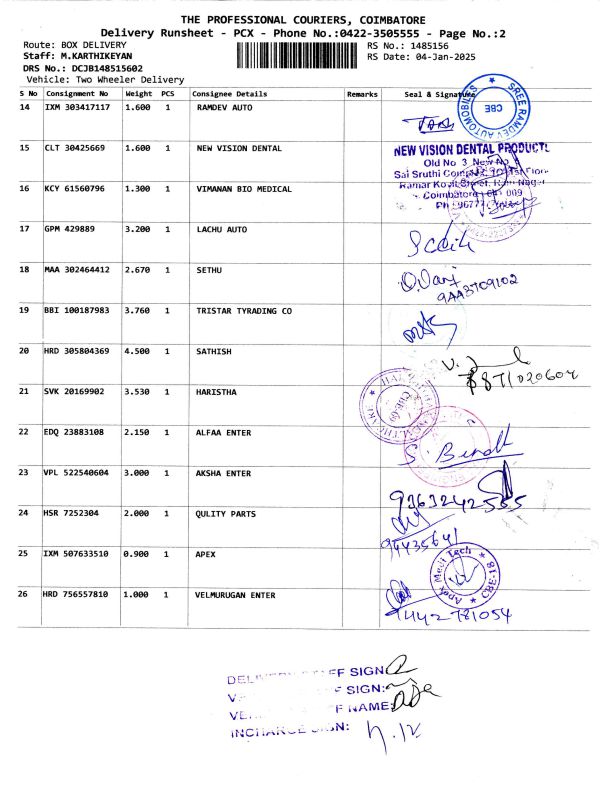 THE PROFESSIONAL COURIERS, COIMBATORE
Delivery Runsheet - PCX - Phone No.:0422-3505555 - Page No.:2
Route: BOX DELIVERY RS No.: 1485156
Staff: M.KARTHIKEYAN RS Date: 04-Jan-2025
DRS No.: DCJB148515602
Vehicle: Two Wheeler Delivery
S No Consignment No Weight PCS Consignee Details Remarks Seal & Signature
14 IXM 303417117 1.600 1 RAMDEV AUTO
SREE RAMDEV AUTOMOBILES CBE
15 CLT 30425669 1.600 1 NEW VISION DENTAL
NEW VISION DENTAL PRODUCT
Old No 3 New No
Sai Sruthi
16 KCY 61560796 1.300 1 VIMANAN BIO MEDICAL
Ramar Koil Street, Ram Nagar
Coimbatore 009
17 GPM 429889 3.200 1 LACHU AUTO
18 MAA 302464412 2.670 1 SETHU
19 BBI 100187983 3.760 1 TRISTAR TYRADING CO
20 HRD 305804369 4.500 1 SATHISH
21 SVK 20169902 3.530 1 HARISTHA
22 EDQ 23883108 2.150 1 ALFAA ENTER
23 VPL 522540604 3.000 1 AKSHA ENTER
24 HSR 7252304 2.000 1 QULITY PARTS
25 IXM 507633510 0.900 1 APEX
Apex Medi Tech CBE-18
26 HRD 756557810 1.000 1 VELMURUGAN ENTER
DELIVERY STAFF SIGN:
SIGN:
NAME:
INCHARGE SIGN: